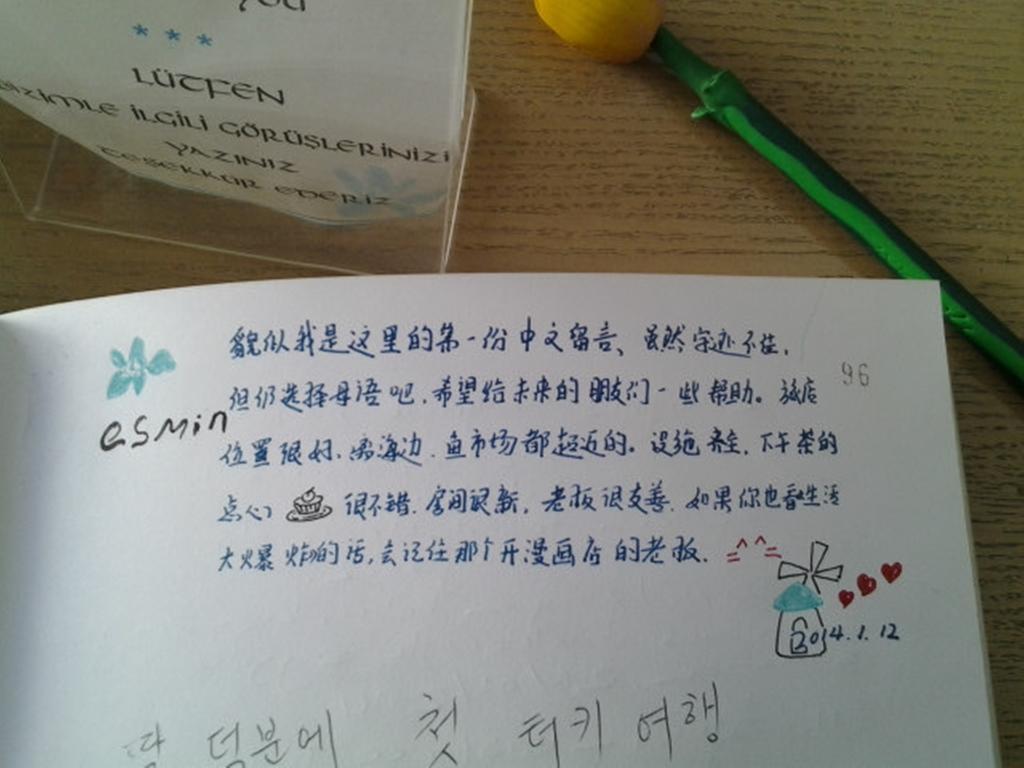 you
* * *
LÜTFEN
BİZİMLE İLGİLİ GÖRÜŞLERİNİZİ
YAZINIZ
TEŞEKKÜR EDERİZ
貌似我是这里的第一份中文留言、虽然字迹不佳,
96
但仍选择母语吧,希望给未来的朋友们一些帮助。旅店
esmin
位置很好、离海边、鱼市场都超近的。设施齐全,下午茶的
点心 很不错.房间很新,老板很友善.如果你也看生活
大火暴炸的话,会记住那个开漫画店的老板. =^^=
2014.1.12
딸 덕분에 첫 터키 여행